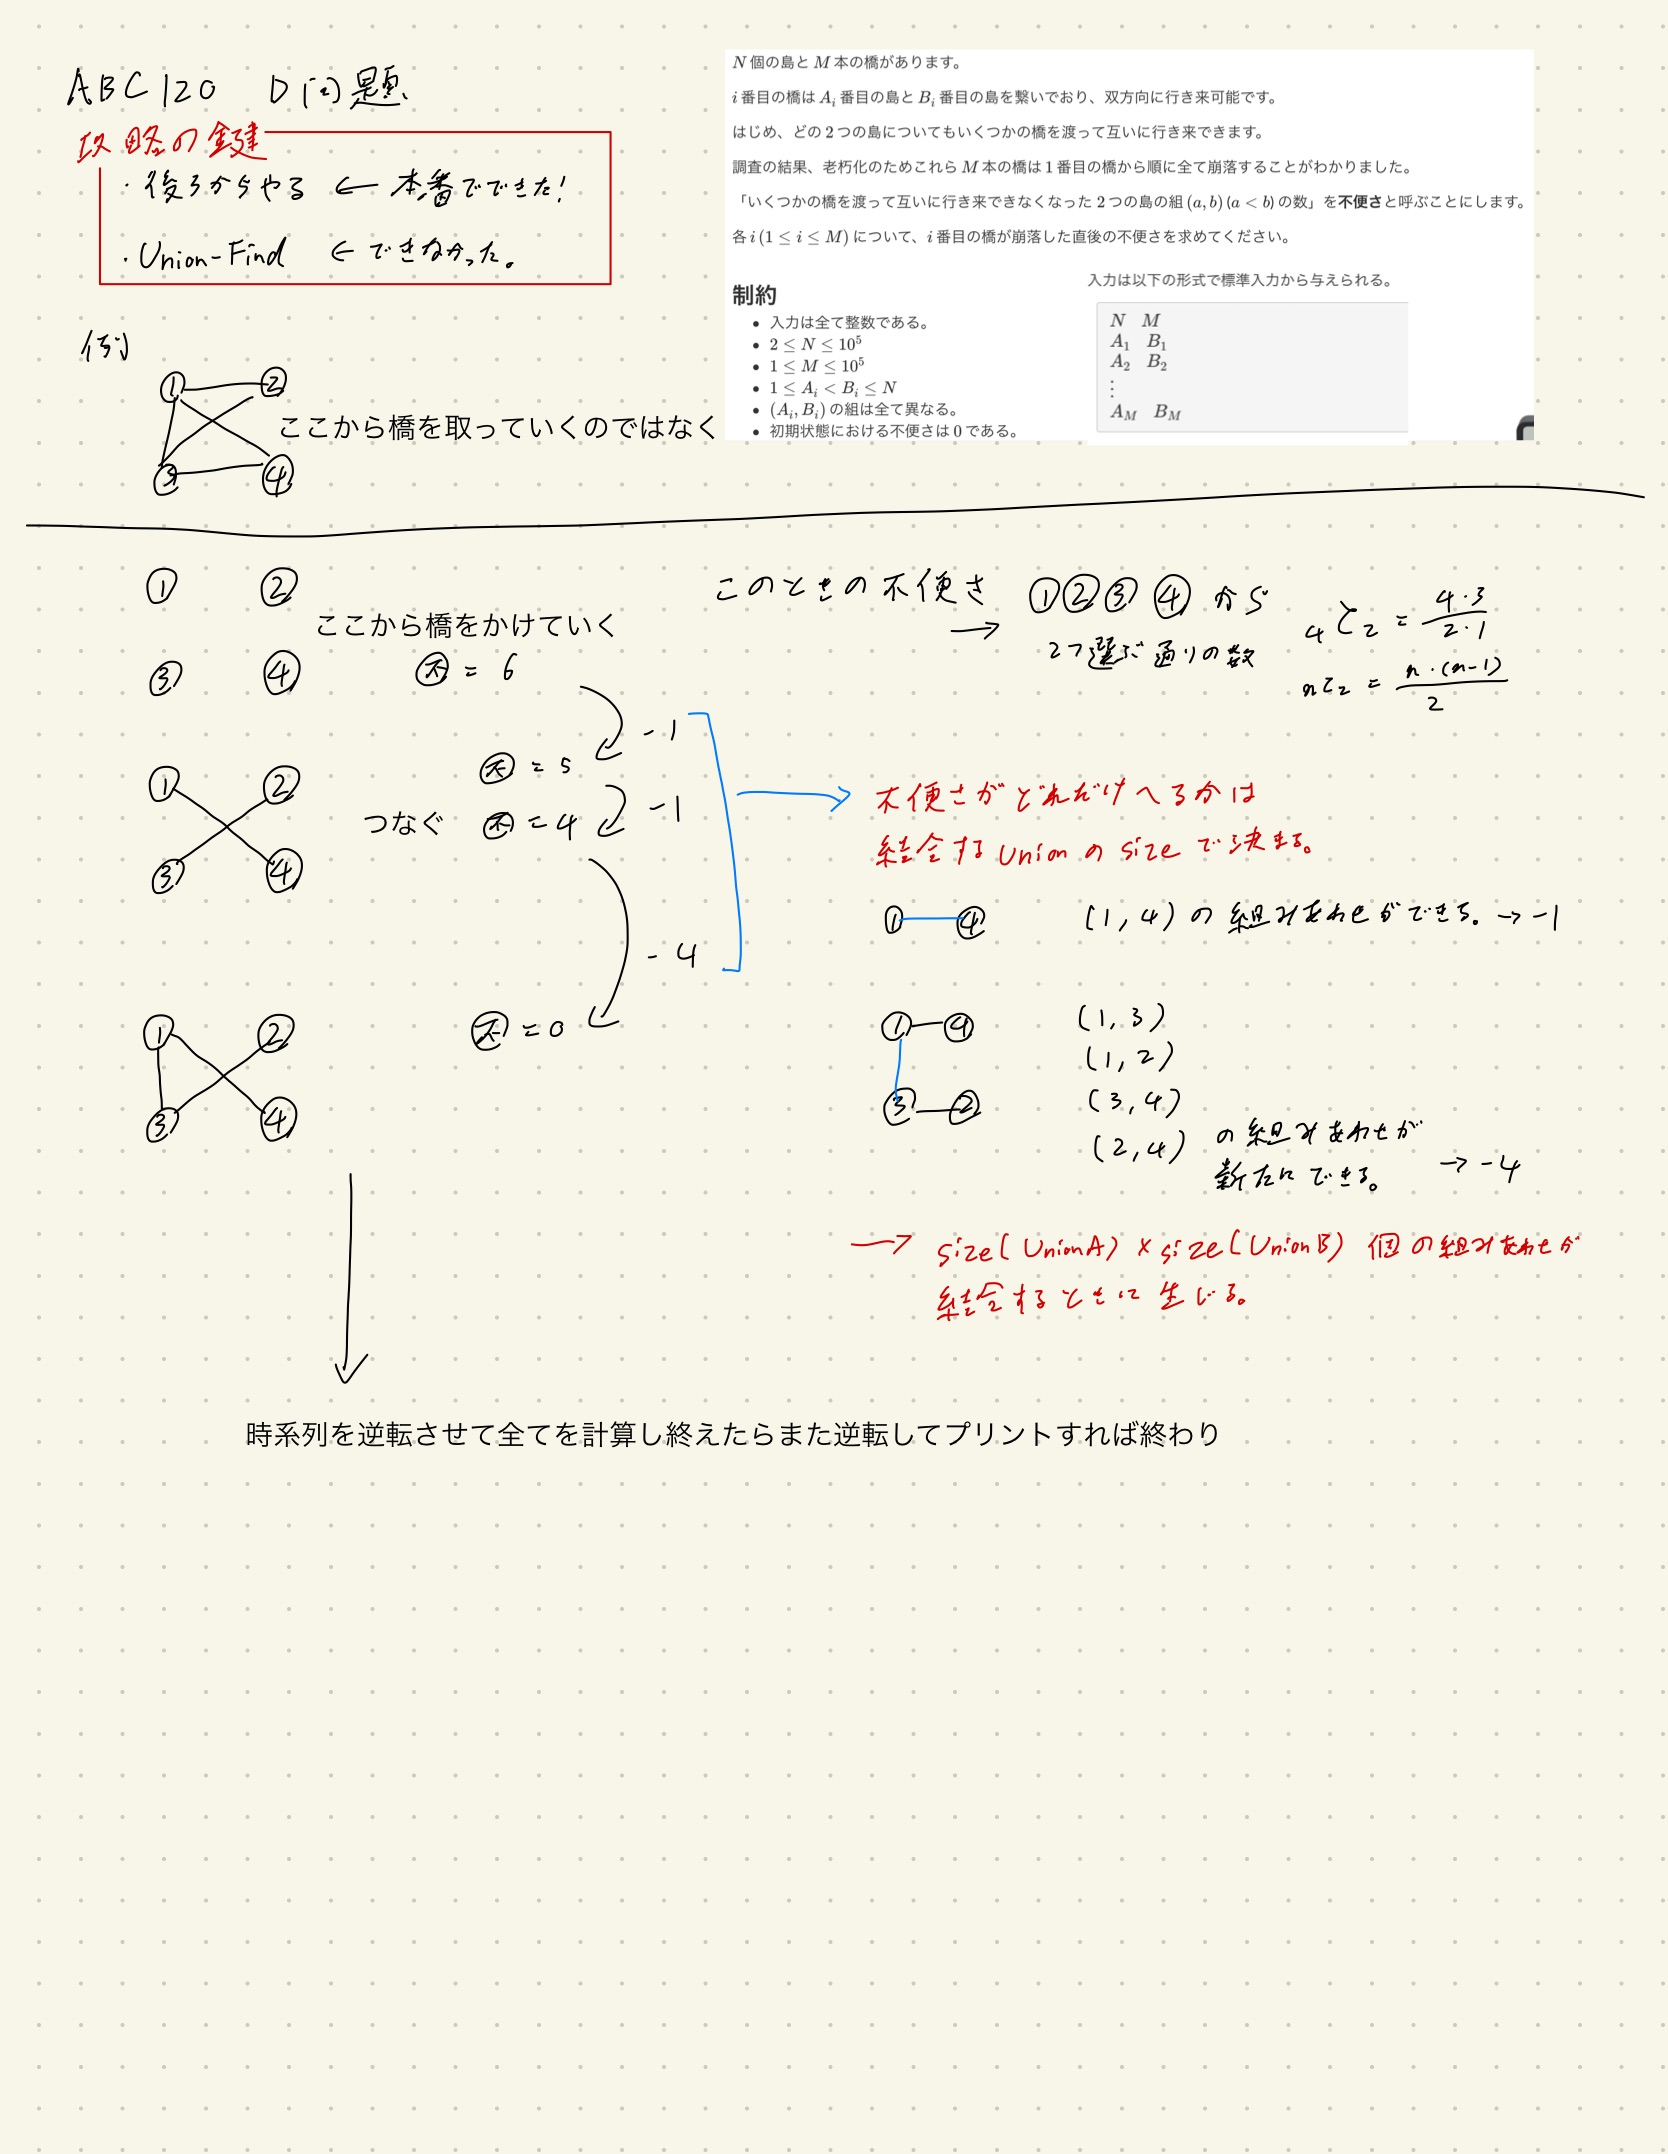 ABC120 D問題
攻略の鍵
・後ろからやる ← 本番でできた!
・Union-Find ← できなかった。
N 個の島と M 本の橋があります。
i 番目の橋は A_i 番目の島と B_i 番目の島を繋いでおり、双方向に行き来可能です。
はじめ、どの 2 つの島についてもいくつかの橋を渡って互いに行き来できます。
調査の結果、老朽化のためこれら M 本の橋は 1 番目の橋から順に全て崩落することがわかりました。
「いくつかの橋を渡って互いに行き来できなくなった 2 つの島の組 (a, b) (a < b) の数」を不便さと呼ぶことにします。
各 i (1 ≤ i ≤ M) について、i 番目の橋が崩落した直後の不便さを求めてください。
制約
• 入力は全て整数である。
• 2 ≤ N ≤ 10^5
• 1 ≤ M ≤ 10^5
• 1 ≤ A_i < B_i ≤ N
• (A_i, B_i) の組は全て異なる。
• 初期状態における不便さは 0 である。
入力は以下の形式で標準入力から与えられる。
N M
A_1 B_1
A_2 B_2
⋮
A_M B_M
例
① ②
ここから橋を取っていくのではなく
③ ④
① ②
ここから橋をかけていく
③ ④
不 = 6
このときの不便さ
→ ①②③④ から
2つ選ぶ通りの数
4C2 = 4・3 / 2・1
nC2 = n・(n-1) / 2
-1
① ②
不 = 5
つなぐ 不 = 4
-1
③ ④
-4
① ②
不 = 0
③ ④
不便さがどれだけへるかは
結合するUnionのsizeで決まる。
① ④ (1, 4) の組みあわせができる。→ -1
① ④
③ ②
(1, 3)
(1, 2)
(3, 4)
(2, 4) の組みあわせが
新たにできる。 → -4
→ size(UnionA) × size(UnionB) 個の組みあわせが
結合するときに生じる。
時系列を逆転させて全てを計算し終えたらまた逆転してプリントすれば終わり